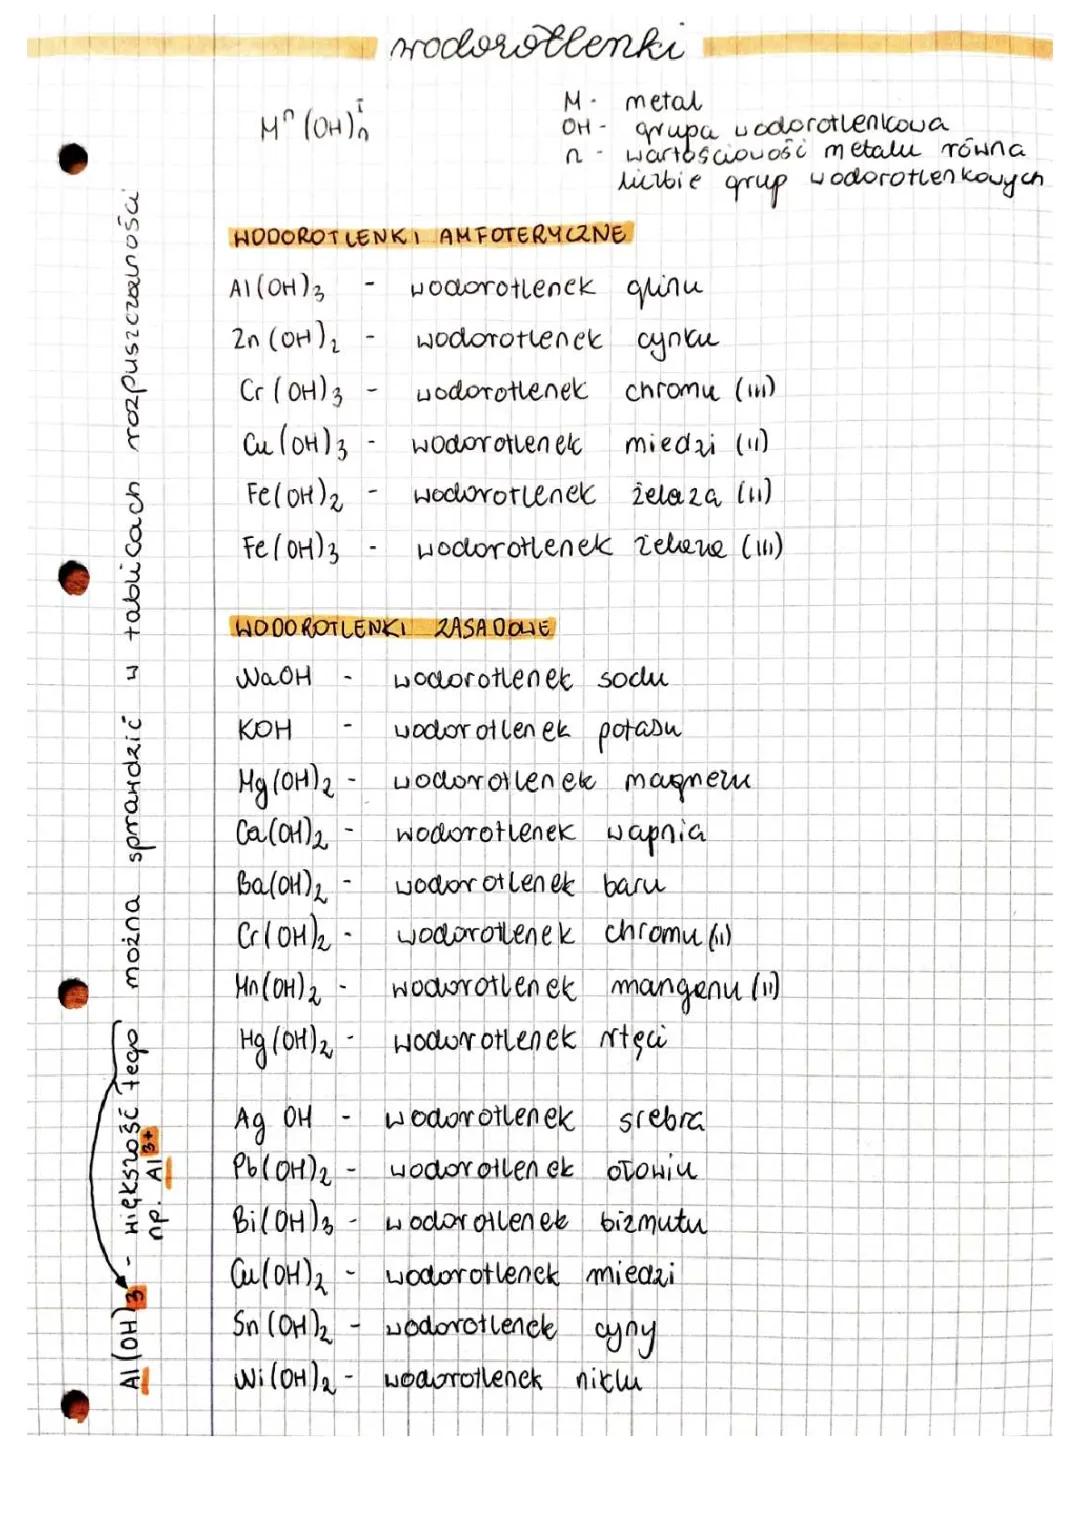 wodorotlenki
Mⁿ(OH)ᴵₙ
M - metal
OH - grupa wodorotlenkowa
n - wartościowość metalu równa
liczbie grup wodorotlenkowych
WODOROTLENKI AMFOTERYCZNE
Al(OH)₃ - wodorotlenek glinu
Zn(OH)₂ - wodorotlenek cynku
Cr(OH)₃ - wodorotlenek chromu (III)
Cu(OH)₃ - wodorotlenek miedzi (II)
Fe(OH)₂ - wodorotlenek żelaza (II)
Fe(OH)₃ - wodorotlenek żelaza (III)
WODOROTLENKI ZASADOWE
NaOH - wodorotlenek sodu
KOH - wodorotlenek potasu
Mg(OH)₂ - wodorotlenek magnezu
Ca(OH)₂ - wodorotlenek wapnia
Ba(OH)₂ - wodorotlenek baru
Cr(OH)₂ - wodorotlenek chromu (II)
Mn(OH)₂ - wodorotlenek manganu (II)
Hg(OH)₂ - wodorotlenek rtęci
Ag OH - wodorotlenek srebra
Pb(OH)₂ - wodorotlenek ołowiu
Bi(OH)₃ - wodorotlenek bizmutu
Cu(OH)₂ - wodorotlenek miedzi
Sn(OH)₂ - wodorotlenek cyny
Ni(OH)₂ - wodorotlenek niklu
Al(OH)₃ - większość tego można sprawdzić w tablicach rozpuszczalności
np. Al³⁺